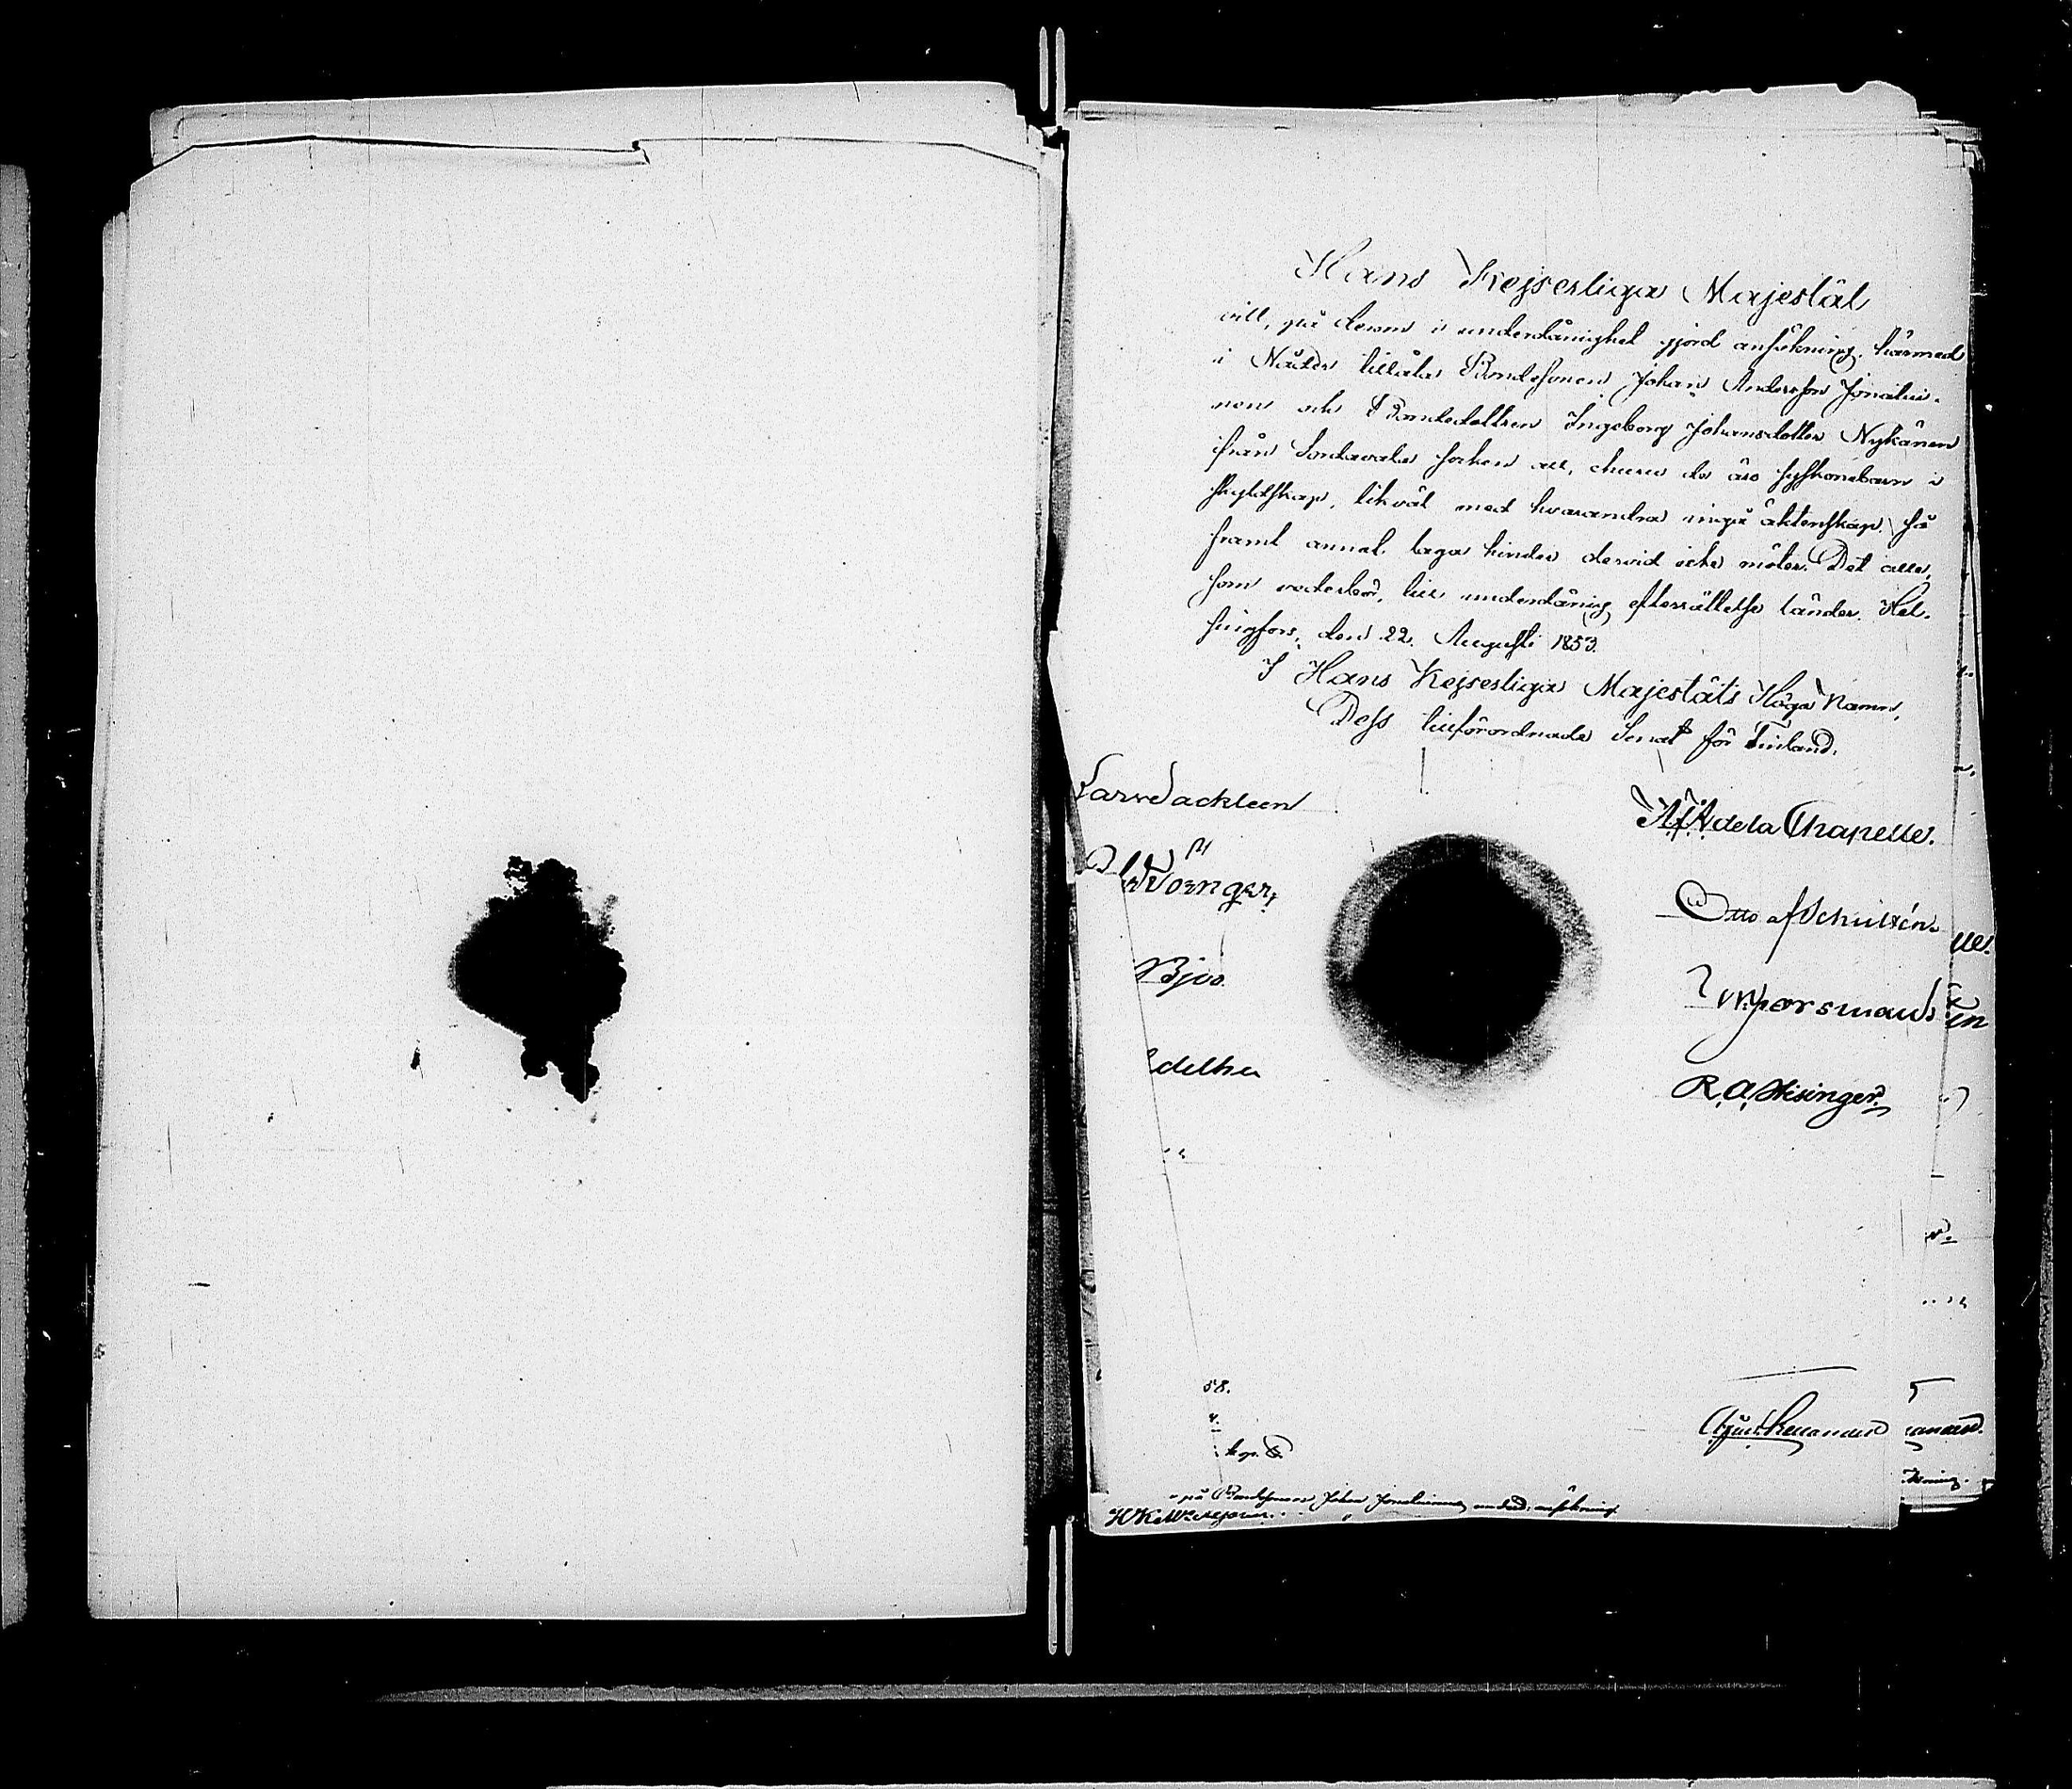 Hans Kejserliga Majestät
vill, på derom i underdånighet gjord ansökning, härmed
i Nåder tillåta Bondesonen Johan Andersson Jonalai-
nen och Bondedottren Ingeborg Johansdotter Nykänen
ifrån Sordavala socken att, ehuru de äro syskonebarn i
skyldskap, likväl med hvarandra ingå äktenskap, så
framt annat laga hinder dervid icke möter. Det alle,
som vederbör, till underdånig efterrättelse länder. Hel-
singfors, den 22. Augusti 1853.
I Hans Kejserliga Majestäts Höga Namn,
Dess tillförordnade Senat för Finland.
Lars Sackleen
A. F. A. de la Chapelle.
Otto af Schultén.
Bjoo
Edelhe
R. A. Wisinger.
58.
4.
kop. S.
på Bondesonen Johan underd. ansökning